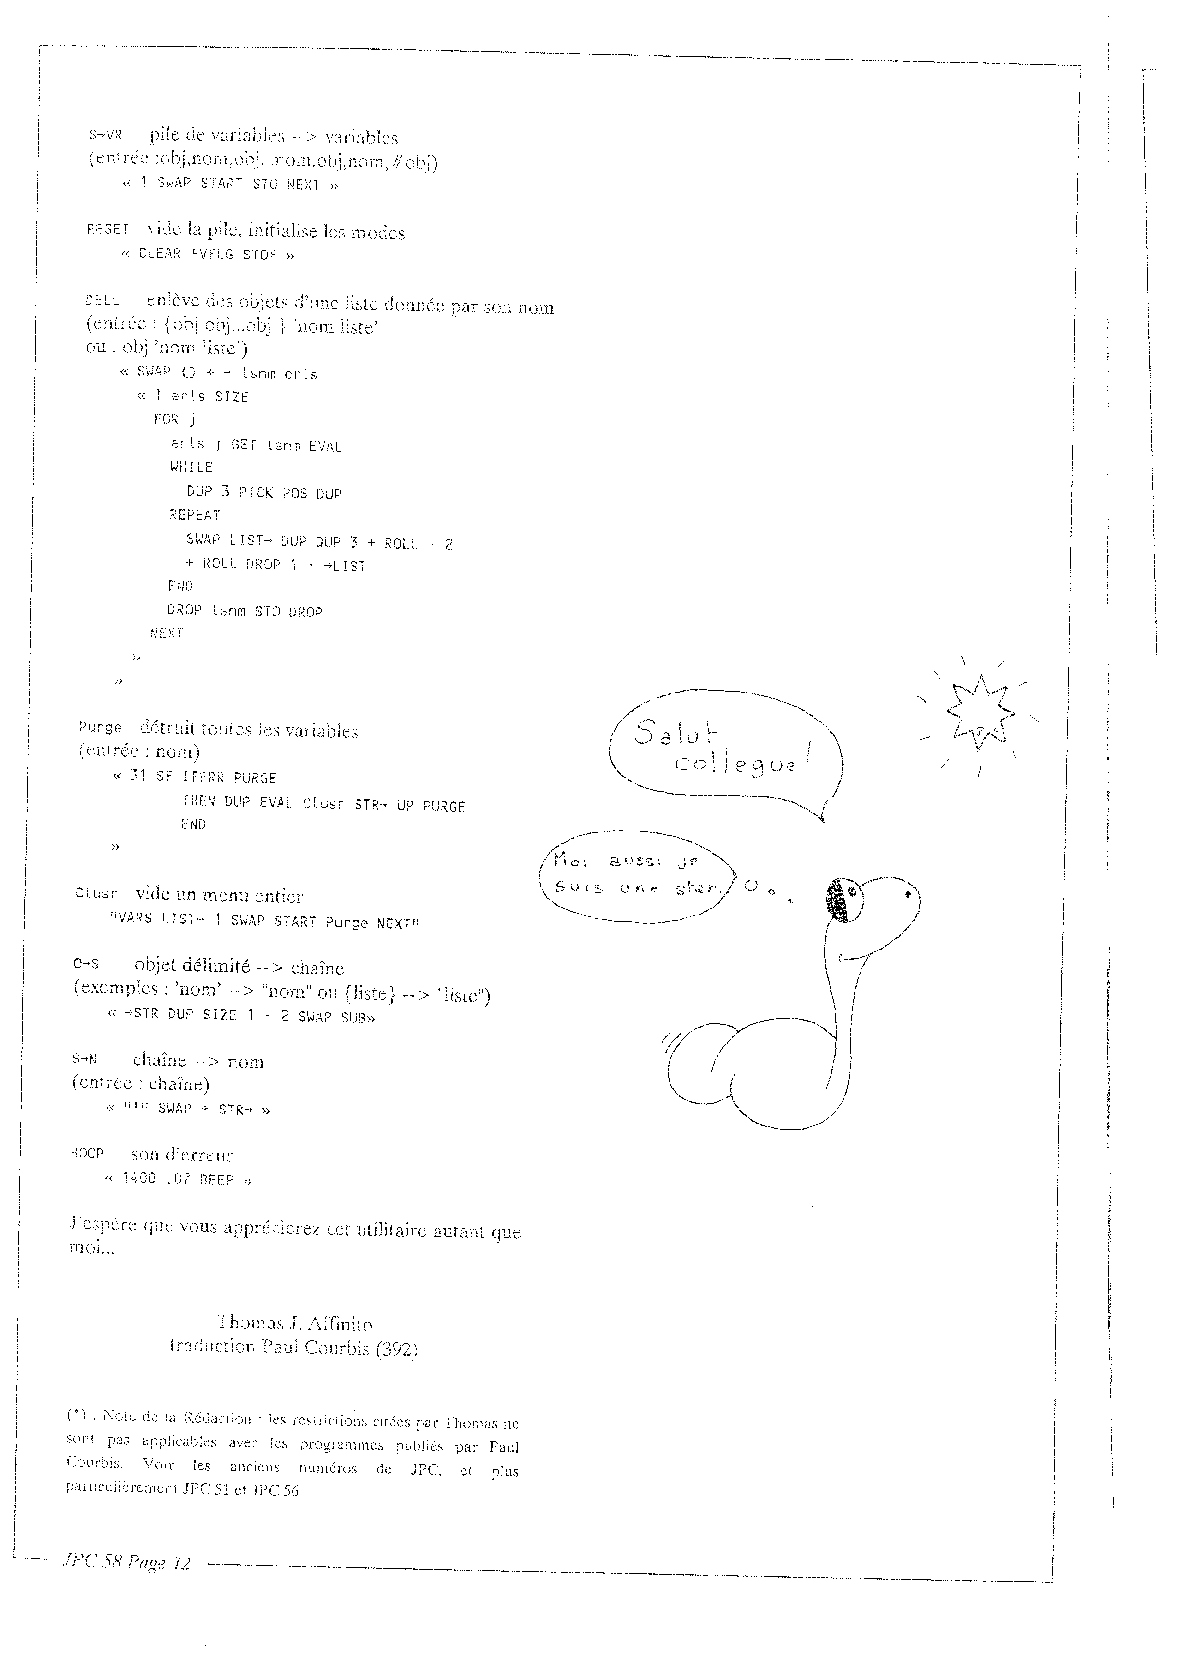 S→VR pile de variables --> variables
(entrée :obj,nom,obj, nom,obj,nom,#obj)
« 1 SWAP START STO NEXT »
RESET vide la pile, initialise les modes
« CLEAR STOF »
DELL enlève des objets d'une liste donnée par son nom
(entrée : {obj obj...obj } 'nom liste'
ou : obj 'nom liste')
« SWAP {} + → lsnm orls
« 1 orls SIZE
FOR j
orls j GET lsnm EVAL
WHILE
DUP 3 PICK POS DUP
REPEAT
SWAP LIST→ DUP DUP 3 + ROLL - 2
+ ROLL DROP 1 - →LIST
END
DROP lsnm STO DROP
NEXT
»
»
Purge détruit toutes les variables
(entrée : nom)
« 31 SF IFERR PURGE
THEN DUP EVAL Clusr STR→ UP PURGE
END
»
Clusr vide un menu entier
"VARS LIST→ 1 SWAP START Purge NEXT"
O→S objet délimité --> chaîne
(exemples : 'nom' --> "nom" ou {liste} --> "liste")
« →STR DUP SIZE 1 - 2 SWAP SUB»
S→N chaîne --> nom
(entrée : chaîne)
« "'" SWAP + STR→ »
son d'erreur
« 1400 .07 BEEP »
J'espère que vous apprécierez cet utilitaire autant que
moi...
Thomas J. Affinito
traduction Paul Courbis (392)
(*) : Note de la Rédaction : les restrictions citées par Thomas ne
sont pas applicables avec les programmes publiés par Paul
Courbis. Voir les anciens numéros de JPC, et plus
particulièrement JPC 51 et JPC 56
JPC 58 Page 12
Salut
collegue!
Moi aussi je
suis une star!